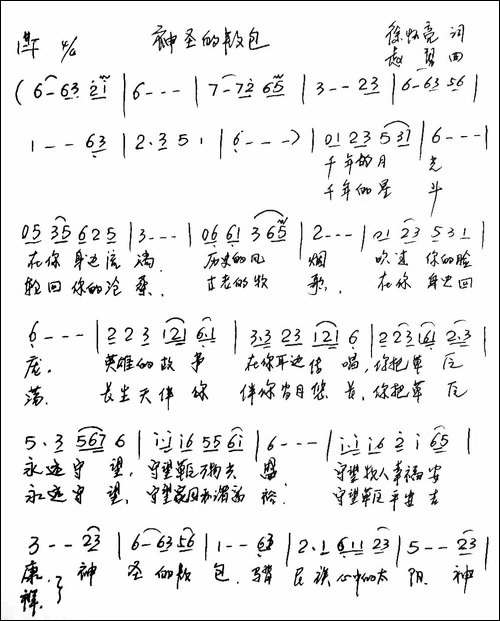 1=F 4/4 神圣的敖包
徐怀亮 词
曲
( 6-63 2i | 6--- | 7-72 65 | 3--23 | 6-63 56 |
1--63 | 2·3 5 1 | 6---) | 01 23 5 31 | 6--- |
千年的月 光
千年的星 斗
05 35 625 | 3--- | 06 61 365 | 2--- | 01 23 531 |
在你 身边流 淌. 历史的风 烟 吹过 你的脸
轮回 你的沧 桑. 古老的牧 歌. 在你 身边回
6--- | 223 121 6·1 | 3·3 23 121 6 | 223161 2·3 |
庞. 英雄的故 事 在你耳边传 唱,你把草 原
荡. 长生天伴 你 伴你岁月悠 长,你把草 原
5·3 567 6 | i·i i6 55 6i | 6--- | i·i i6 2 i 65 |
永远守 望, 守望草原 守望牧人幸福安
永远守 望, 守望家园 守望草原平安吉
3--23 | 6-63 56 | 1--63 | 2·1 611 23 | 5--23 |
康. 神 圣 的敖 包. 民族心中的太 阳. 神
祥.